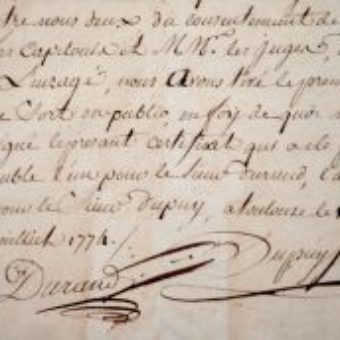 tre nous deux du consentement de
es Capitouls et MMrs. les Juges,
Luragé, nous Avons tiré le prem
e Sort en public, en foy de quoi
igné le présent certificat qui a ete
uble l'un pour le sieur durand, l'a
our le Sieur dupuy, a toulouse le
juillet 1774.
Durand Dupuy